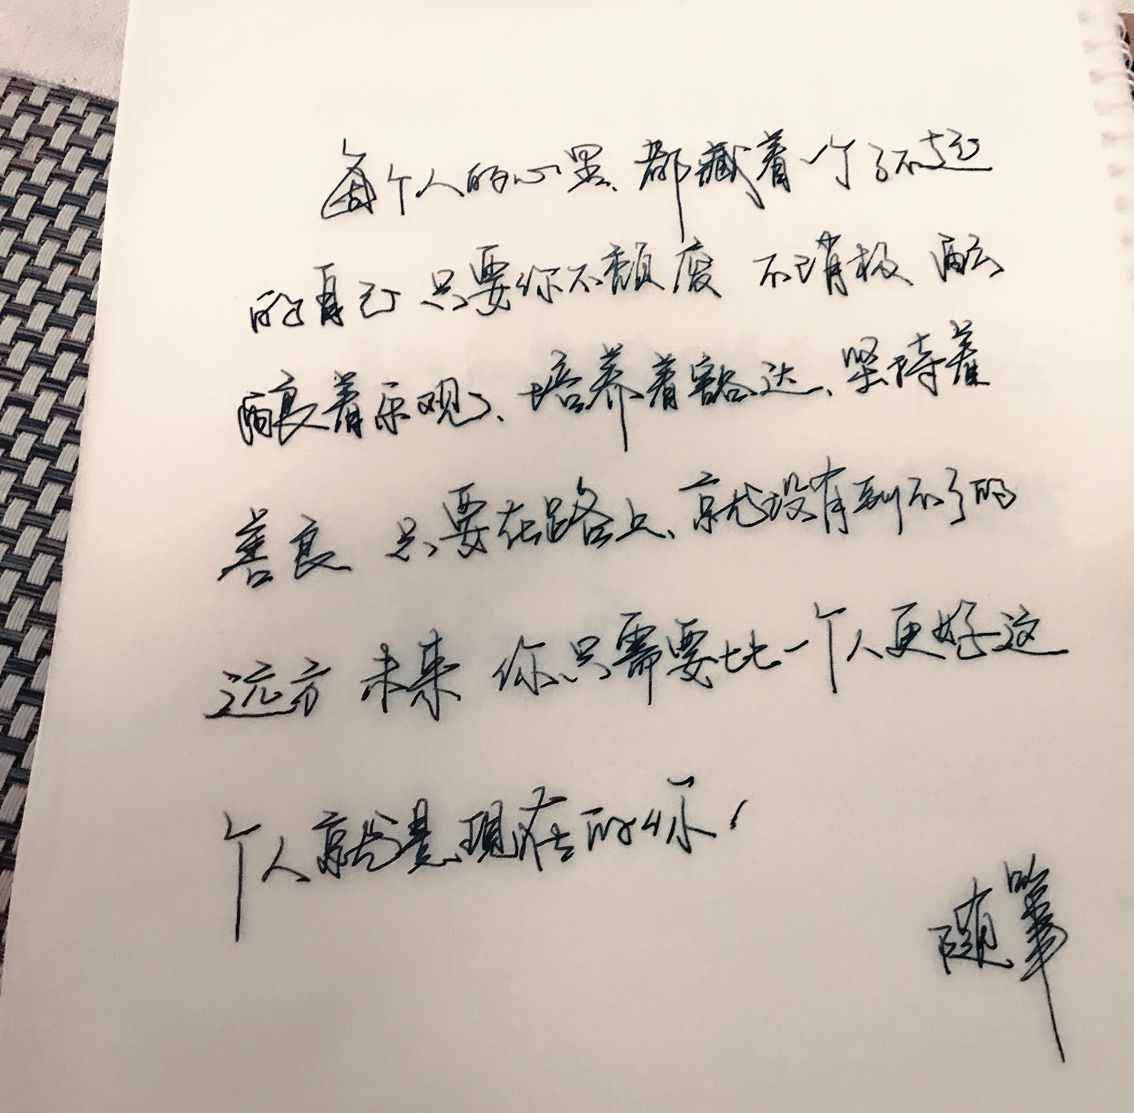 每个人的心里、都藏着一个了不起
的自己 只要你不颓废 不消极、酝
酿着乐观、培养着豁达、坚持着
善良 只要在路上、就没有到不了的
远方 未来 你只需要比一个人更好这
个人就是现在的你！
随笔